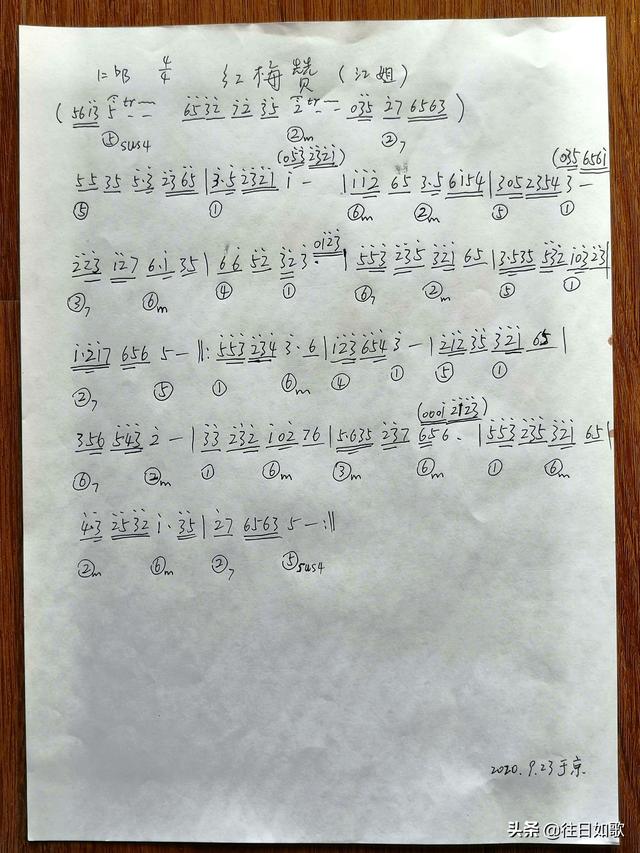 1=bB 4/4 红梅赞(江姐)
(5613 5 tr 6532 72 35 2 tr 035 27 6563)
⑤sus4 ②m ②7
(0532321) (0356561
5535 5·3 2365|3·5 2321 1 — |112 65 3·5 6154|3052354 3 —
⑤ ① ⑥m ②m ⑤ ①
0123
223 127 6·1 35|66 52 323·|553 235 321 65|3·535 532 10323|
③7 ⑥m ④ ① ⑥7 ②m ⑤ ①
1·217 656 5 — ‖:553 234 3·6|123 654 3 — |212 35 321 65|
②7 ⑤ ① ⑥m ④ ① ⑤ ①
(0001 2123)
356 543 2 — |33 232 102 76|5·635 237 656·|553 235 321 65|
⑥7 ②m ① ⑥m ③m ⑥m ① ⑥m
4·3 2532 1·35|27 6563 5 — :‖
②m ⑥m ②7 ⑤sus4
2020.9.23于京
头条 @往日如歌